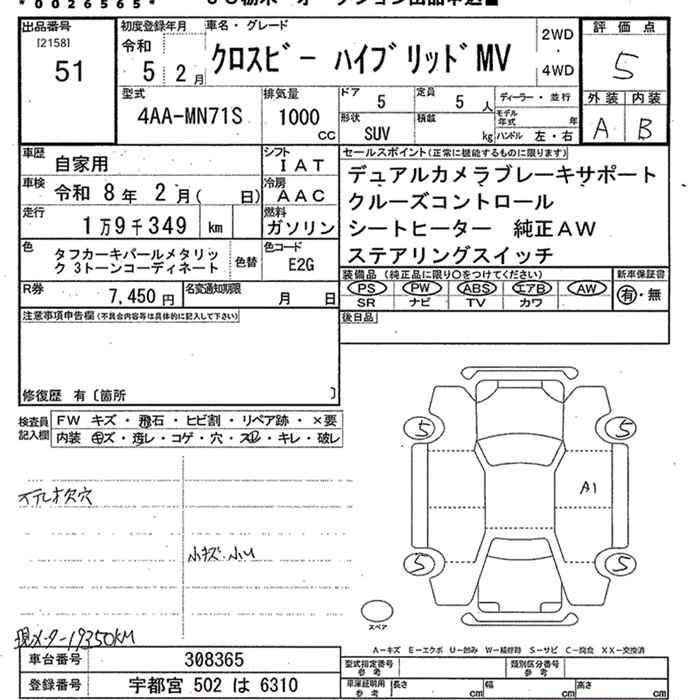 *0026565*
出品番号
[2158]
51
初度登録年月
令和
5 2月
車名・グレード
クロスビー ハイブリッドMV
2WD
4WD
評価点
5
外装 内装
A B
型式
4AA-MN71S
排気量
1000
cc
ドア
5
定員
5 人
形状
SUV
積載
kg
ディーラー・並行
モデル年式 年
ハンドル 左・右
車歴
自家用
シフト
IAT
車検
令和 8年 2月( 日)
冷房
AAC
走行
1万9千349 km
燃料
ガソリン
色
タフカーキパールメタリッ
ク 3トーンコーディネート
色替
色コード
E2G
R券
7,450円
名変通知期限
月 日
セールスポイント(正常に機能するものに限ります)
デュアルカメラブレーキサポート
クルーズコントロール
シートヒーター 純正AW
ステアリングスイッチ
装備品 (純正品に限り○をつけてください)
PS PW ABS エアB AW
SR ナビ TV カワ
新車保証書
有・無
注意事項申告欄(不具合内容等は具体的に記入して下さい)
後日品
修復歴 有〔箇所 〕
検査員
記入欄
FW キズ・飛石・ヒビ割・リペア跡・×要
内装 キズ・汚レ・コゲ・穴・スレ・キレ・破レ
小キズ.小U
現メーター19350KM
5
5
A1
5
5
スペア
A-キズ E-エクボ U-凹み W-補修跡 S-サビ C-腐食 XX-交換済
車台番号
308365
登録番号
宇都宮 502 は 6310
型式指定番号
参考
類別区分番号
参考
車庫証明用
参考
長さ cm
幅 cm
高さ cm